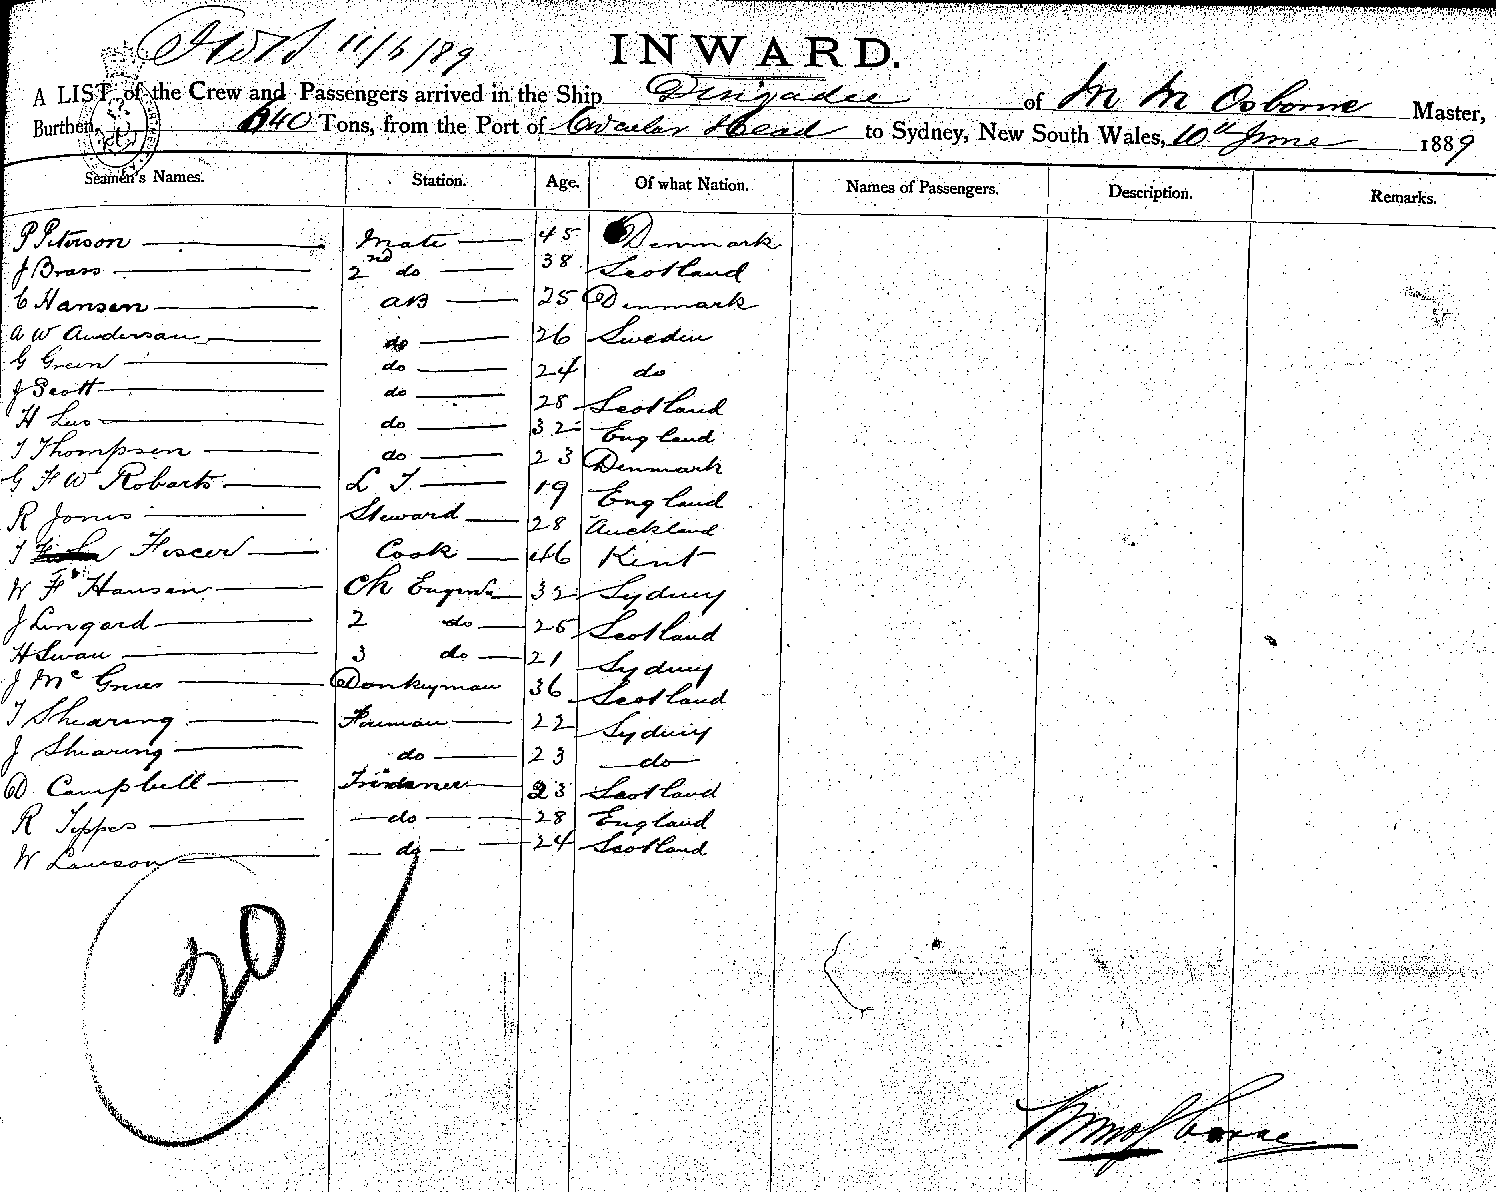 11/6/89
INWARD.
A LIST of the Crew and Passengers arrived in the Ship Dingadee of M M Osborne Master,
Burthen, 640 Tons, from the Port of Circular Head to Sydney, New South Wales, 10th June 1889
Seamen's Names. Station. Age. Of what Nation. Names of Passengers. Description. Remarks.
P Peterson Mate 45 Denmark
J Brass 2nd do 38 Scotland
C Hansen AB 25 Denmark
A W Anderson do 26 Sweden
G Green do 24 do
J Scott do 28 Scotland
H Lus do 32 England
T Thompsen do 23 Denmark
G F W Robarts L T 19 England
R Jones Steward 28 Auckland
T Fiscer Cook 46 Kent
W F Hansen Ch Engineer 32 Sydney
J Lingard 2 do 25 Scotland
H Swan 3 do 21 Sydney
J Mc Donkeyman 36 Scotland
T Shearing Fireman 22 Sydney
J Shearing do 23 do
D Campbell Trimmer 23 Scotland
R Tippes do 28 England
W Lawson do 24 Scotland
20
M M Osborne